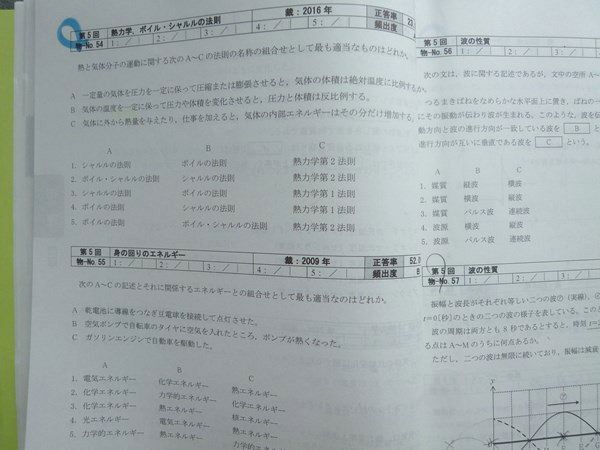 第5回 熱力学、ボイル・シャルルの法則 裁:2016年 正答率 23
物-No.54 1:／ 2:／ 3:／ 4:／ 5:／ 頻出度
熱と気体分子の運動に関する次のA〜Cの法則の名称の組合せとして最も適当なものはどれか。
A 一定量の気体を圧力を一定に保って圧縮または膨張させると，気体の体積は絶対温度に比例する
B 気体の温度を一定に保って圧力や体積を変化させると，圧力と体積は反比例する。
C 気体に外から熱量を与えたり，仕事を加えると，気体の内部エネルギーはその分だけ増加する。
A B C
1. シャルルの法則 ボイルの法則 熱力学第2法則
2. ボイル・シャルルの法則 シャルルの法則 熱力学第2法則
3. シャルルの法則 ボイルの法則 熱力学第1法則
4. ボイルの法則 シャルルの法則 熱力学第1法則
5. ボイルの法則 ボイル・シャルルの法則 熱力学第2法則
第5回 身の回りのエネルギー 裁:2009年 正答率 52.0
物-No.55 1:／ 2:／ 3:／ 4:／ 5:／ 頻出度 B
次のA〜Cの記述とそれに関係するエネルギーとの組合せとして最も適当なのはどれか。
A 乾電池に導線をつなぎ豆電球を接続して点灯させた。
B 空気ポンプで自転車のタイヤに空気を入れたところ，ポンプが熱くなった。
C ガソリンエンジンで自動車を駆動した。
A B C
1. 電気エネルギー 化学エネルギー 熱エネルギー
2. 化学エネルギー 力学的エネルギー 化学エネルギー
3. 化学エネルギー 熱エネルギー 核エネルギー
4. 光エネルギー 電気エネルギー 熱エネルギー
5. 力学的エネルギー 熱エネルギー 力学的エネルギー
第5回 波の性質
物-No.56 1:／ 2:／ 3:／
次の文は，波に関する記述であるが，文中の空所A〜
つるまきばねをなめらかな水平面上に置き，ばねの一
にその振動が伝わり波が生まれる。このような，波を伝
動方向と波の進行方向が一致している波を B
進行方向が互いに垂直である波を C という。
A B C
1. 媒質 縦波 横波
2. 媒質 横波 縦波
3. 媒質 パルス波 連続波
4. 波源 横波 縦波
5. 波源 パルス波 連続波
第5回 波の性質
物-No.57 1:／ 2:／ 3:／
振幅と波長がそれぞれ等しい二つの波①（実線），②
t=0[秒]のときの二つの波の様子を表している。この
波の周期は両方とも8秒であるとすると，時刻
る点はA〜Mのうちに何点あるか。
ただし，二つの波は無限に続いており，振幅は減衰
y